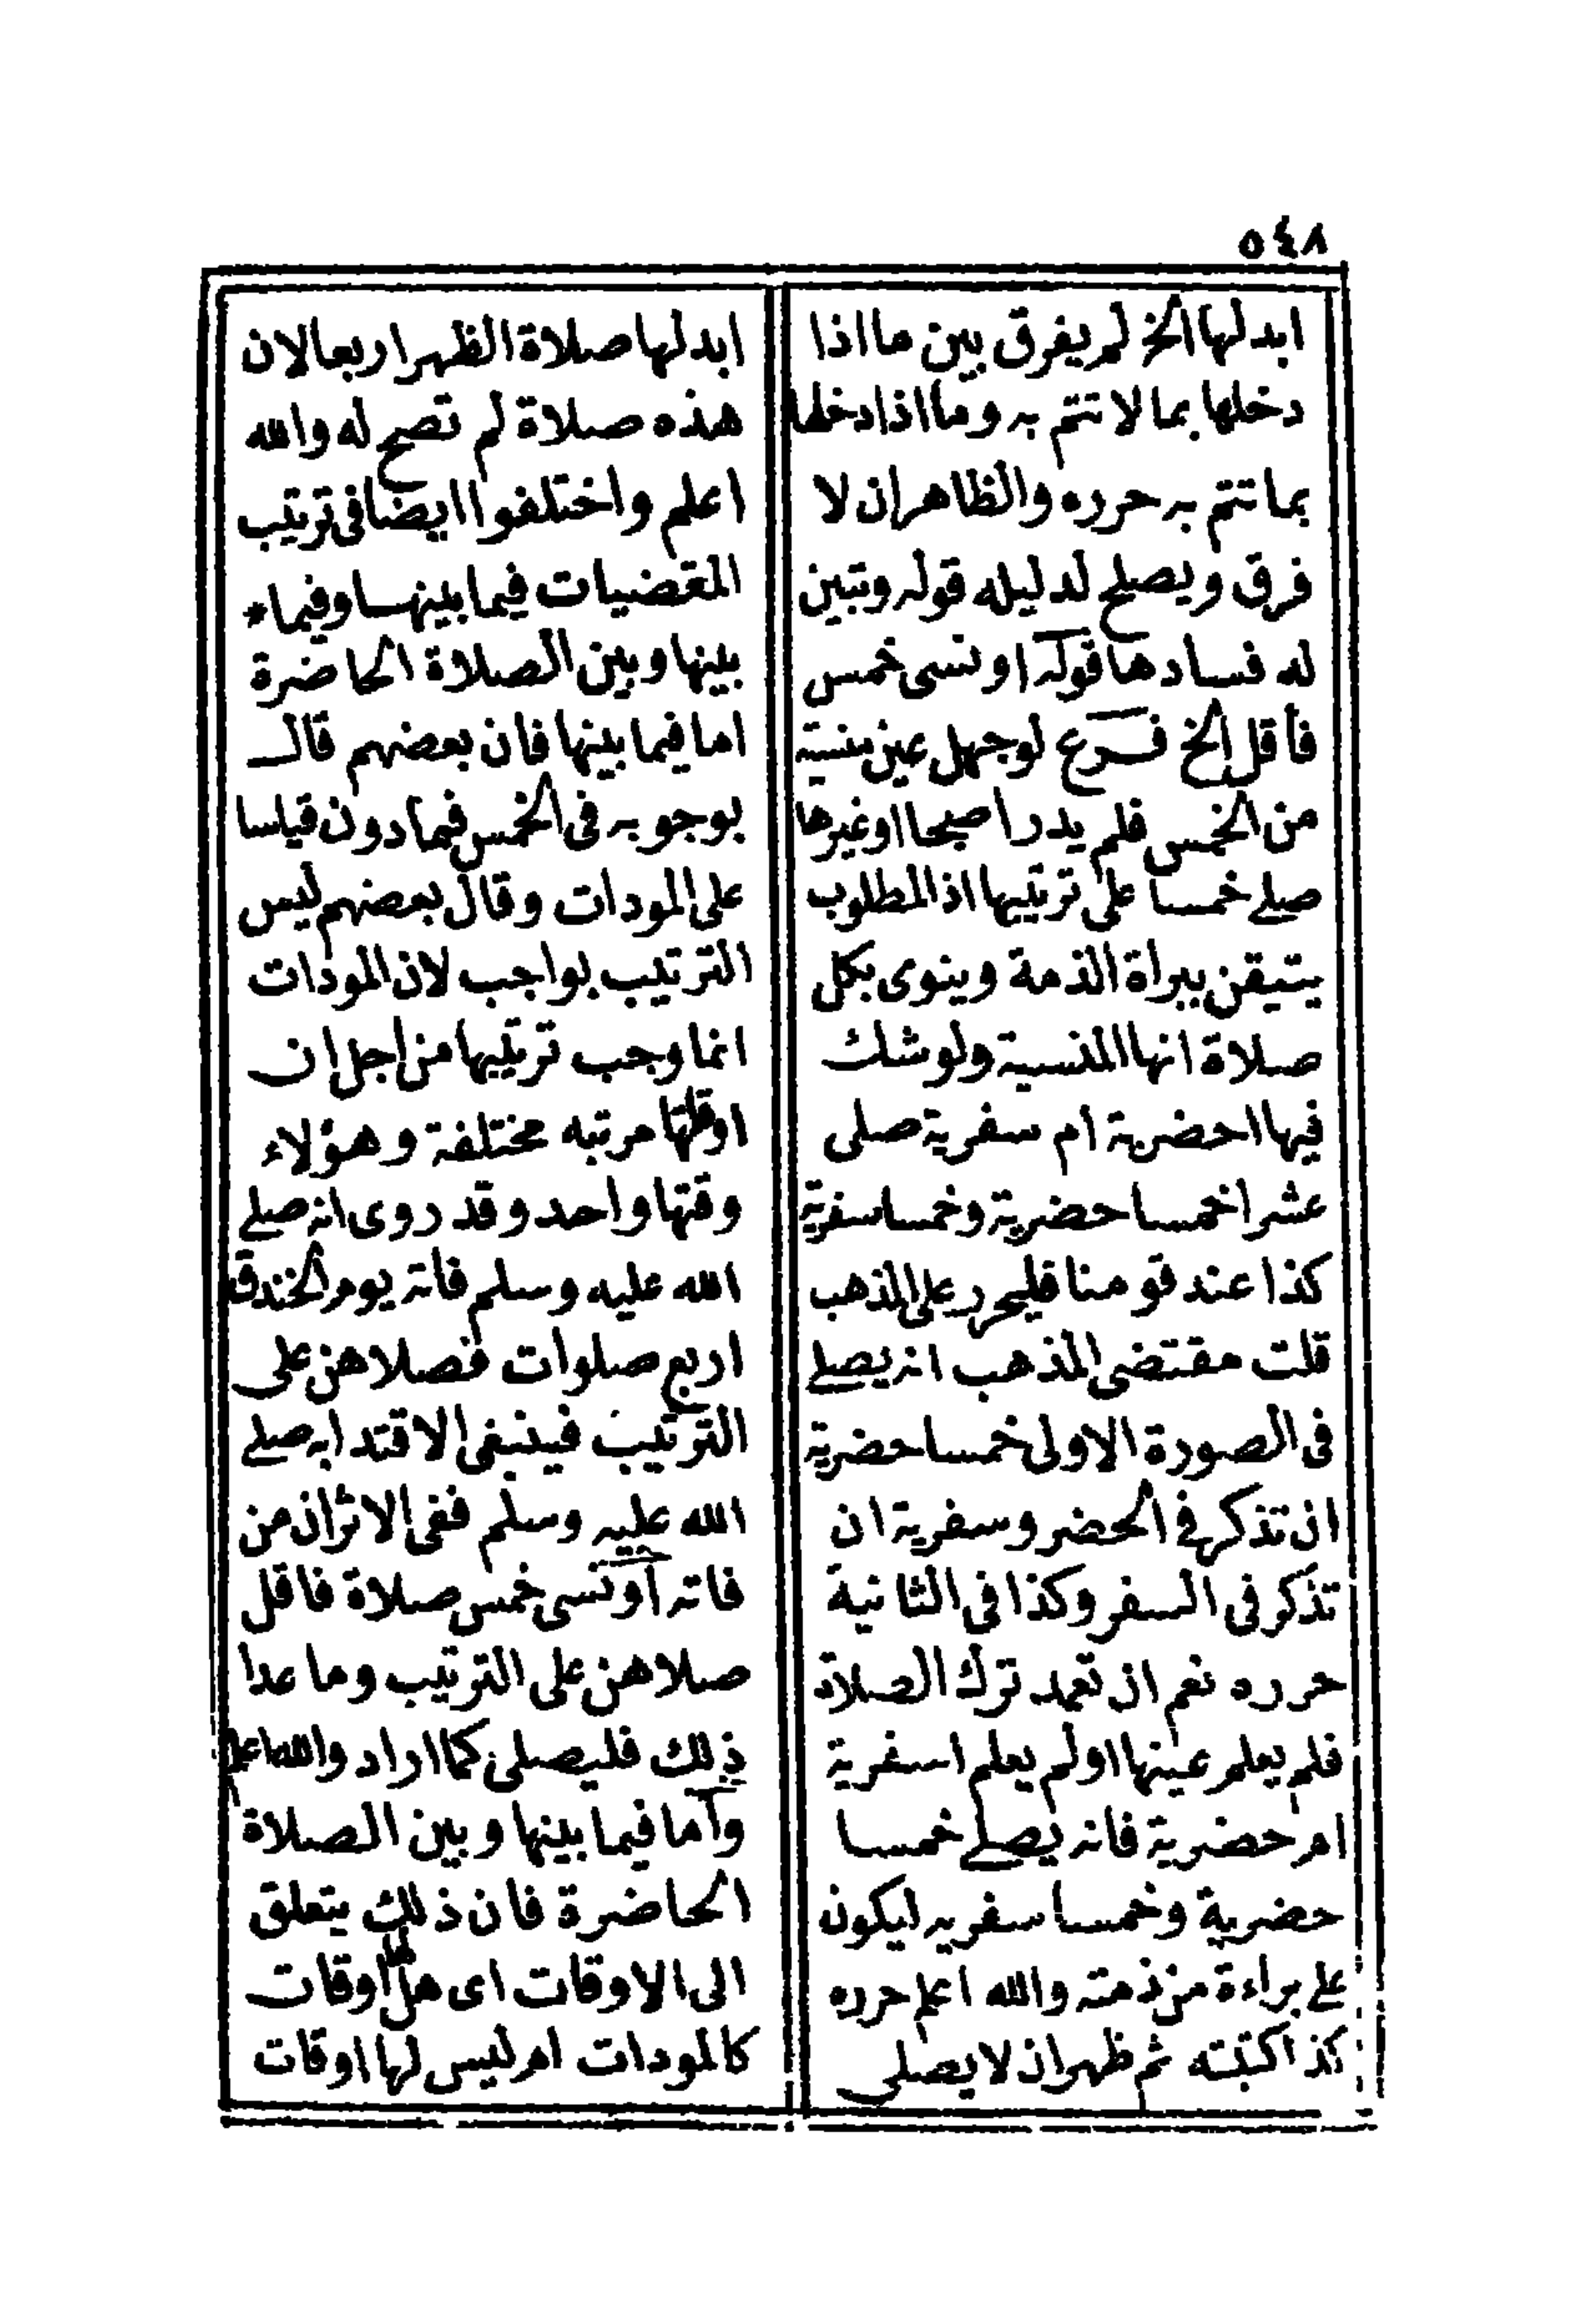 ٥٤٨
ابدلها الخ لم يفرق بين ما اذا
دخلها بما لا تتم به وما اذا دخلها
بما تتم به حرره والظاهران لا
فرق ويصلح لدليله قوله وتبين
له فسادها قوله او نسى خمس
فأقل الخ فرع لو جهل عين منسية
من الخمس فلم يدر اصبحا او غيرها
صلى خمسا على ترتيبها اذ المطلوب
يتيقن ببراة الذمة وينوى بكل
صلاة انها المنسية ولو شك
فيها احضرية ام سفرية صلى
عشرا خمسا حضرية وخمسا سفرية
كذا عند قومنا فليحرر على المذهب
قلت مقتضى المذهب انه يصلى
فى الصورة الاولى خمسا حضرية
ان تذكرها فى الحضر وسفرية ان
تذكر فى السفر وكذا فى الثانية
حرره نعم ان تعمد ترك الصلاة
فلم يعلم عينها او لم يعلم اسفرية
ام حضرية فانه يصلى خمسا
حضرية وخمسا سفريه ليكون
على براءة من ذمته والله اعلم حرره
كذا كتبته ثم ظهران لا يصلى
ابدلها صلاة الظهر اربعا لان
هذه صلاة لم تصح له والله
اعلم واختلفوا ايضا فى ترتيب
المقضيات فيما بينها وفيما *
بينها وبين الصلاة الحاضرة
اما فيما بينها فان بعضهم قال
بوجوبه فى الخمس فما دون قياسا
على المودات وقال بعضهم ليس
الترتيب بواجب لان المودات
انما وجب ترتيبها من اجل ان
اوقاتها مرتبه مختلفة وهؤلاء
وقتها واحد وقد روى انه صلى
الله عليه وسلم فاته يوم الخندق
اربع صلوات فصلاهن على
الترتيب فينبغى الاقتدا به صلى
الله عليه وسلم ففى الاثر ان من
فاته او نسى خمس صلاة فاقل
صلاهن على الترتيب وما عدا
ذلك فليصلى كما اراد والله اعلم
واما فيما بينها وبين الصلاة
الحاضرة فان ذلك يتعلق
الى الاوقات اى هل لها اوقات
كالمودات ام ليس لها اوقات